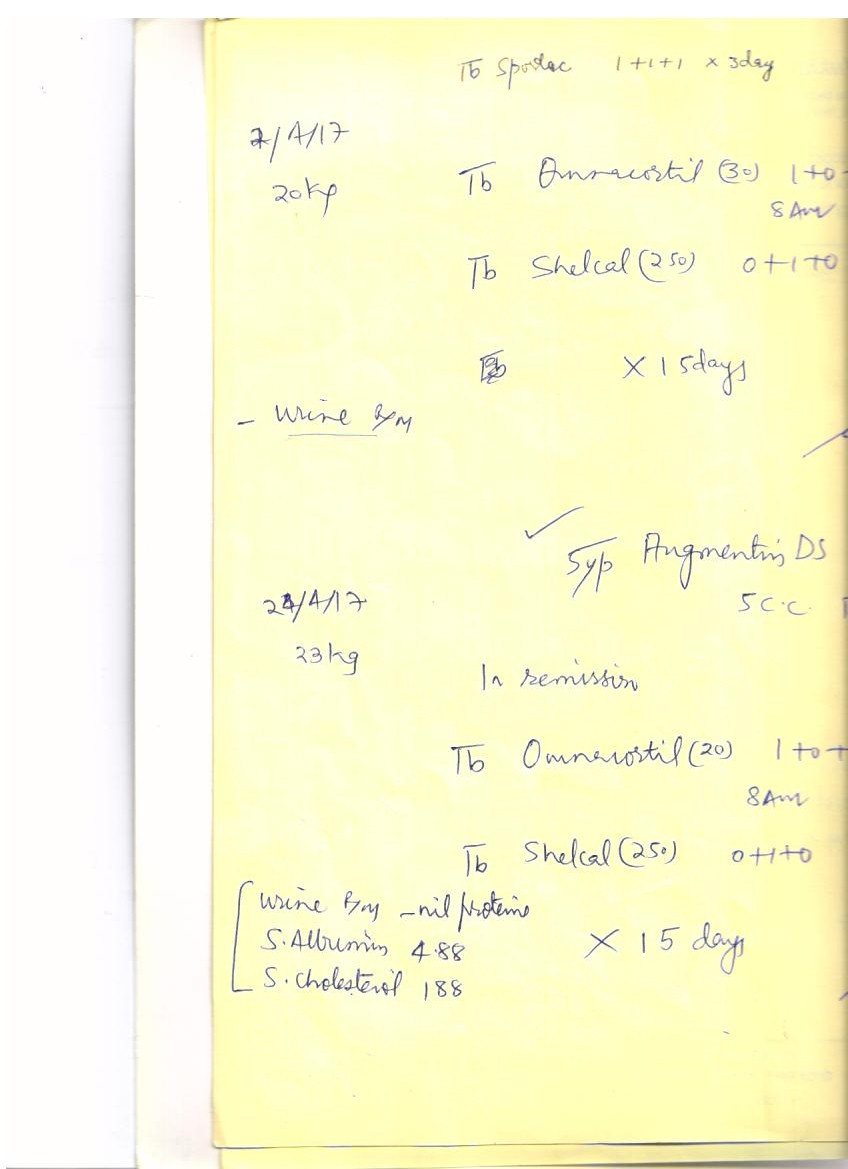 Tb Sporlac 1+1+1 x 3day
2/4/17
20kg
Tb Omnacortil (30) 1+0+
8 Am
Tb Shelcal (250) 0+1+0
X 15days
- Urine R/M
✓ Syp Augmentin DS
5 c.c.
24/4/17
23kg
In remission
Tb Omnacortil (20) 1+0+
8 Am
Tb Shelcal (250) 0+1+0
Urine R/M - nil proteins
S. Albumin 4.88
X 15 days
S. Cholesterol 188